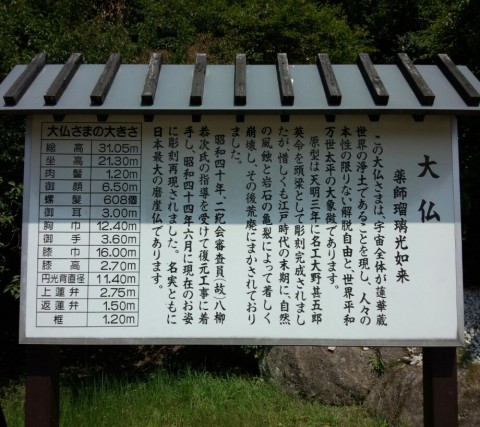 大仏
薬師瑠璃光如来
この大仏さまは、宇宙全体が蓮華蔵
世界の浄土であることを現し、人々の
本性の限りない解脱自由と、世界平和
万世太平の大象徴であります。
原型は天明三年に名工大野甚五郎
英令を頭梁として彫刻完成されまし
たが、惜しくも江戸時代の末期に、自然
の風蝕と岩石の亀裂によって著しく
崩壊し、その後荒廃にまかされており
ました。
昭和四十年、二科会審査員(故)八柳
恭次氏の指導を受けて復元工事に着
手し、昭和四十四年六月に現在のお姿
に彫刻再現されました。名実ともに
日本最大の磨崖仏であります。
大仏さまの大きさ
総高 31.05m
坐高 21.30m
肉髻 1.20m
御顔 6.50m
螺髪 608個
御耳 3.00m
胸巾 12.40m
御手 3.60m
膝巾 16.00m
膝高 2.70m
円光背直径 11.40m
上蓮弁 2.75m
返蓮弁 1.50m
框 1.20m